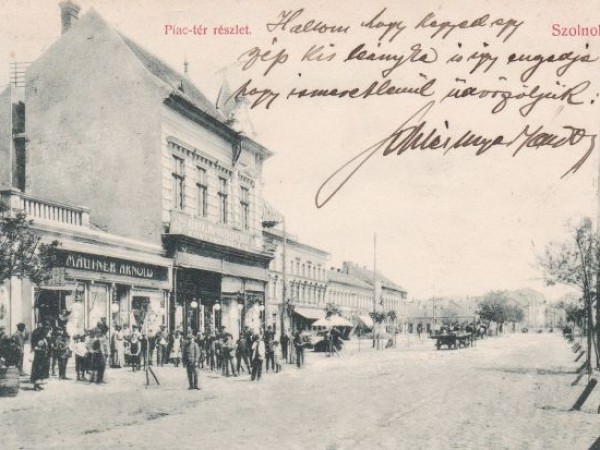 Piac-tér részlet.
Szolnok
Hallom hogy kegyed egy
szép kis leányka és így engedje
hogy ismeretlenül üdvözöljük.
MAUTNER ARNOLD